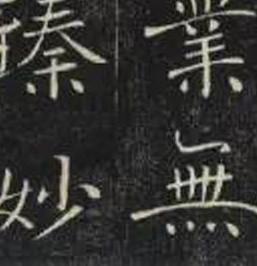 業無
臻妙